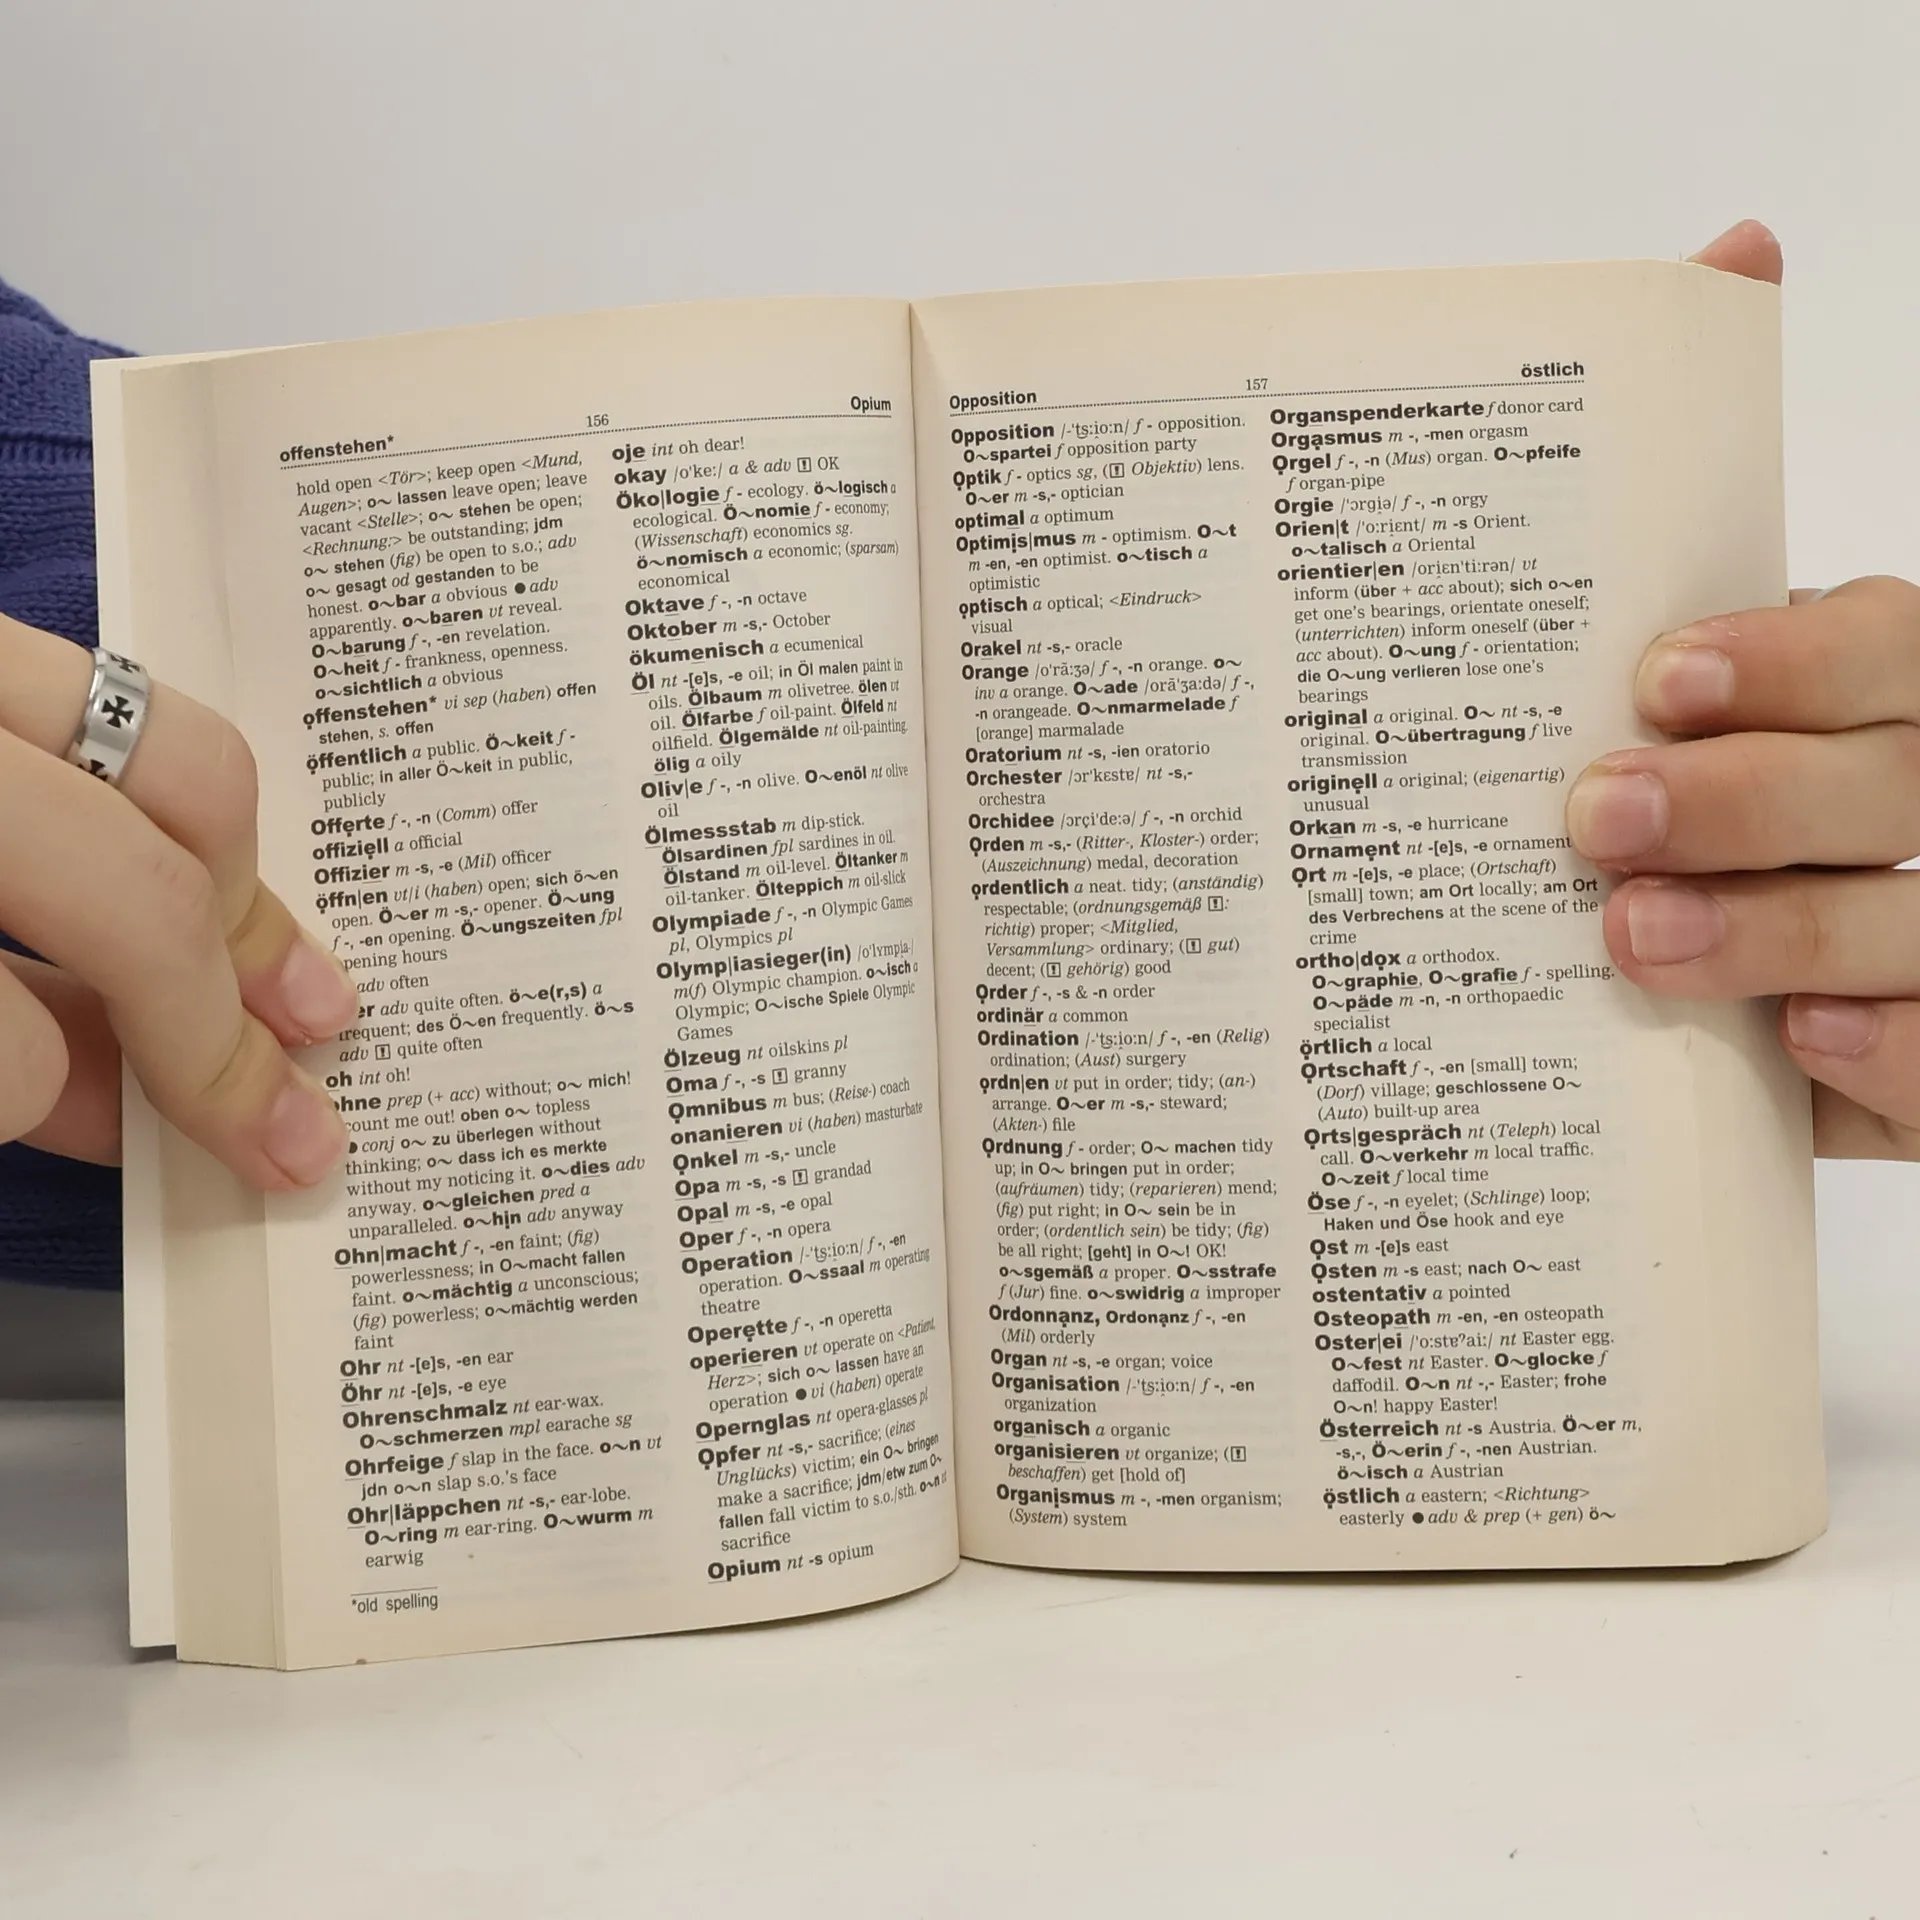 offenstehen*
156
Opium
hold open <Tür>; keep open <Mund,
Augen>; o~ lassen leave open; leave
vacant <Stelle>; o~ stehen be open;
<Rechnung:> be outstanding; jdm
o~ stehen (fig) be open to s.o.; adv
o~ gesagt od gestanden to be
honest. o~bar a obvious ● adv
apparently. o~baren vt reveal.
O~barung f -, -en revelation.
O~heit f - frankness, openness.
o~sichtlich a obvious
offenstehen* vi sep (haben) offen
stehen, s. offen
öffentlich a public. Ö~keit f -
public; in aller Ö~keit in public,
publicly
Offerte f -, -n (Comm) offer
offiziell a official
Offizier m -s, -e (Mil) officer
öffn|en vt/i (haben) open; sich ö~en
open. Ö~er m -s,- opener. Ö~ung
f -, -en opening. Ö~ungszeiten fpl
pening hours
adv often
er adv quite often. ö~e(r,s) a
frequent; des Ö~en frequently. ö~s
adv [!] quite often
oh int oh!
hne prep (+ acc) without; o~ mich!
count me out! oben o~ topless
● conj o~ zu überlegen without
thinking; o~ dass ich es merkte
without my noticing it. o~dies adv
anyway. o~gleichen pred a
unparalleled. o~hin adv anyway
Ohn|macht f -, -en faint; (fig)
powerlessness; in O~macht fallen
faint. o~mächtig a unconscious;
(fig) powerless; o~mächtig werden
faint
Ohr nt -[e]s, -en ear
Öhr nt -[e]s, -e eye
Ohrenschmalz nt ear-wax.
O~schmerzen mpl earache sg
Ohrfeige f slap in the face. o~n vt
jdn o~n slap s.o.'s face
Ohr|läppchen nt -s,- ear-lobe.
O~ring m ear-ring. O~wurm m
earwig
*old spelling
oje int oh dear!
okay /o'ke:/ a & adv [!] OK
Öko|logie f - ecology. ö~logisch a
ecological. Ö~nomie f - economy;
(Wissenschaft) economics sg.
ö~nomisch a economic; (sparsam)
economical
Oktave f -, -n octave
Oktober m -s,- October
ökumenisch a ecumenical
Öl nt -[e]s, -e oil; in Öl malen paint in
oils. Ölbaum m olivetree. ölen vt
oil. Ölfarbe f oil-paint. Ölfeld nt
oilfield. Ölgemälde nt oil-painting.
ölig a oily
Oliv|e f -, -n olive. O~enöl nt olive
oil
Ölmessstab m dip-stick.
Ölsardinen fpl sardines in oil.
Ölstand m oil-level. Öltanker m
oil-tanker. Ölteppich m oil-slick
Olympiade f -, -n Olympic Games
pl, Olympics pl
Olymp|iasieger(in) /o'lympia-/
m(f) Olympic champion. o~isch a
Olympic; O~ische Spiele Olympic
Games
Ölzeug nt oilskins pl
Oma f -, -s [!] granny
Omnibus m bus; (Reise-) coach
onanieren vi (haben) masturbate
Onkel m -s,- uncle
Opa m -s, -s [!] grandad
Opal m -s, -e opal
Oper f -, -n opera
Operation /-'ts:io:n/ f -, -en
operation. O~ssaal m operating
theatre
Operette f -, -n operetta
operieren vt operate on <Patient,
Herz>; sich o~ lassen have an
operation ● vi (haben) operate
Opernglas nt opera-glasses pl
Opfer nt -s,- sacrifice; (eines
Unglücks) victim; ein O~ bringen
make a sacrifice; jdm/etw zum O~
fallen fall victim to s.o./sth. o~n vt
sacrifice
Opium nt -s opium
Opposition
157
östlich
Opposition /-'ts:io:n/ f - opposition.
O~spartei f opposition party
Optik f - optics sg, ([!] Objektiv) lens.
O~er m -s,- optician
optimal a optimum
Optimis|mus m - optimism. O~t
m -en, -en optimist. o~tisch a
optimistic
optisch a optical; <Eindruck>
visual
Orakel nt -s,- oracle
Orange /o'rã:ʒə/ f -, -n orange. o~
inv a orange. O~ade /orã'ʒa:də/ f -,
-n orangeade. O~nmarmelade f
[orange] marmalade
Oratorium nt -s, -ien oratorio
Orchester /ɔr'kɛstɐ/ nt -s,-
orchestra
Orchidee /ɔrçi'de:ə/ f -, -n orchid
Orden m -s,- (Ritter-, Kloster-) order;
(Auszeichnung) medal, decoration
ordentlich a neat. tidy; (anständig)
respectable; (ordnungsgemäß [!]:
richtig) proper; <Mitglied,
Versammlung> ordinary; ([!] gut)
decent; ([!] gehörig) good
Order f -, -s & -n order
ordinär a common
Ordination /-'ts:io:n/ f -, -en (Relig)
ordination; (Aust) surgery
ordn|en vt put in order; tidy; (an-)
arrange. O~er m -s,- steward;
(Akten-) file
Ordnung f - order; O~ machen tidy
up; in O~ bringen put in order;
(aufräumen) tidy; (reparieren) mend;
(fig) put right; in O~ sein be in
order; (ordentlich sein) be tidy; (fig)
be all right; [geht] in O~! OK!
o~sgemäß a proper. O~sstrafe
f (Jur) fine. o~swidrig a improper
Ordonnanz, Ordonanz f -, -en
(Mil) orderly
Organ nt -s, -e organ; voice
Organisation /-'ts:io:n/ f -, -en
organization
organisch a organic
organisieren vt organize; ([!]
beschaffen) get [hold of]
Organismus m -, -men organism;
(System) system
Organspenderkarte f donor card
Orgasmus m -, -men orgasm
Orgel f -, -n (Mus) organ. O~pfeife
f organ-pipe
Orgie /'ɔrgiə/ f -, -n orgy
Orien|t /'o:riɛnt/ m -s Orient.
o~talisch a Oriental
orientier|en /oriɛn'ti:rən/ vt
inform (über + acc about); sich o~en
get one's bearings, orientate oneself;
(unterrichten) inform oneself (über +
acc about). O~ung f - orientation;
die O~ung verlieren lose one's
bearings
original a original. O~ nt -s, -e
original. O~übertragung f live
transmission
originell a original; (eigenartig)
unusual
Orkan m -s, -e hurricane
Ornament nt -[e]s, -e ornament
Ort m -[e]s, -e place; (Ortschaft)
[small] town; am Ort locally; am Ort
des Verbrechens at the scene of the
crime
ortho|dox a orthodox.
O~graphie, O~grafie f - spelling.
O~päde m -n, -n orthopaedic
specialist
örtlich a local
Ortschaft f -, -en [small] town;
(Dorf) village; geschlossene O~
(Auto) built-up area
Orts|gespräch nt (Teleph) local
call. O~verkehr m local traffic.
O~zeit f local time
Öse f -, -n eyelet; (Schlinge) loop;
Haken und Öse hook and eye
Ost m -[e]s east
Osten m -s east; nach O~ east
ostentativ a pointed
Osteopath m -en, -en osteopath
Oster|ei /'o:stɐʔai:/ nt Easter egg.
O~fest nt Easter. O~glocke f
daffodil. O~n nt -,- Easter; frohe
O~n! happy Easter!
Österreich nt -s Austria. Ö~er m,
-s,-, Ö~erin f -, -nen Austrian.
ö~isch a Austrian
östlich a eastern; <Richtung>
easterly ● adv & prep (+ gen) ö~